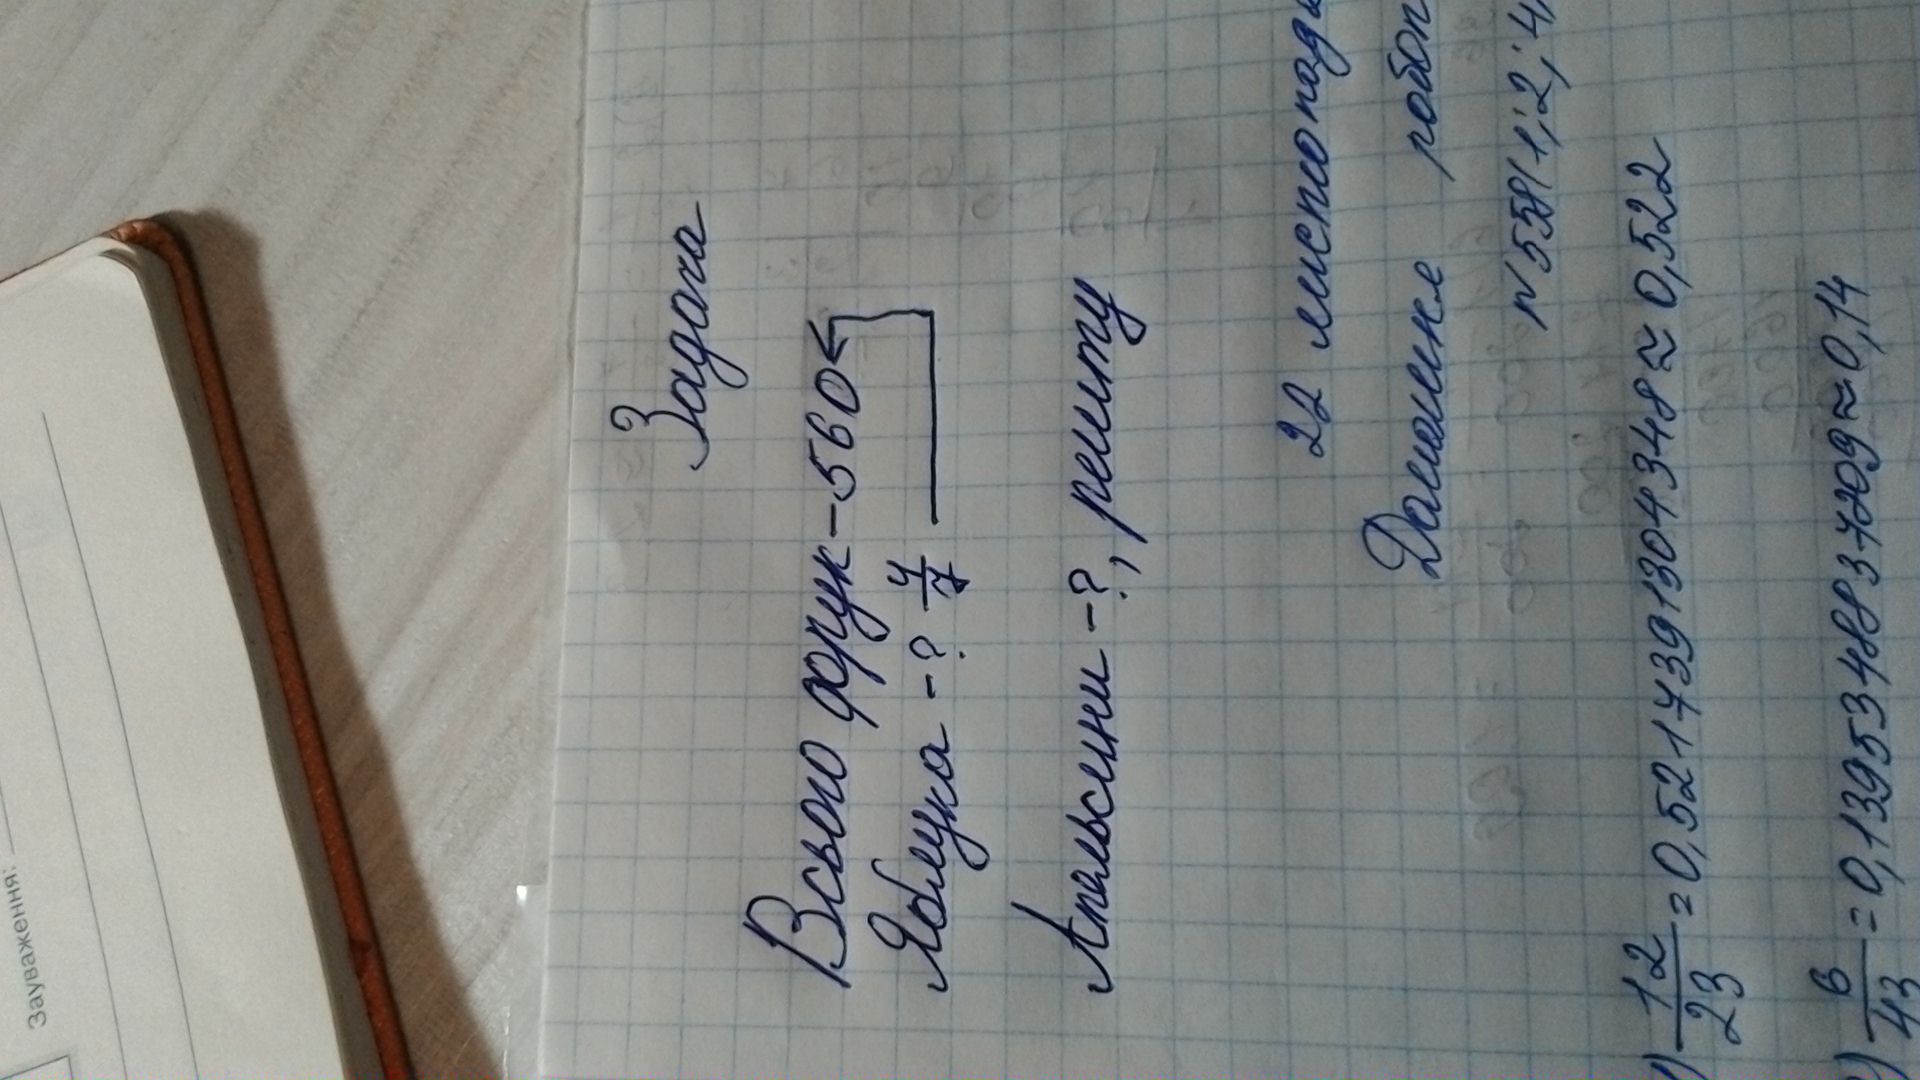 Зауваження:
Задача
Всього фрук-560
Яблука -? 4/7
Апельсини -?, решту
22 листопада
Домашнє робот
№558(1;2;4,
) 12/23 = 0,5217391304348≈0,522
) 6/43 = 0,1395348837209≈0,14